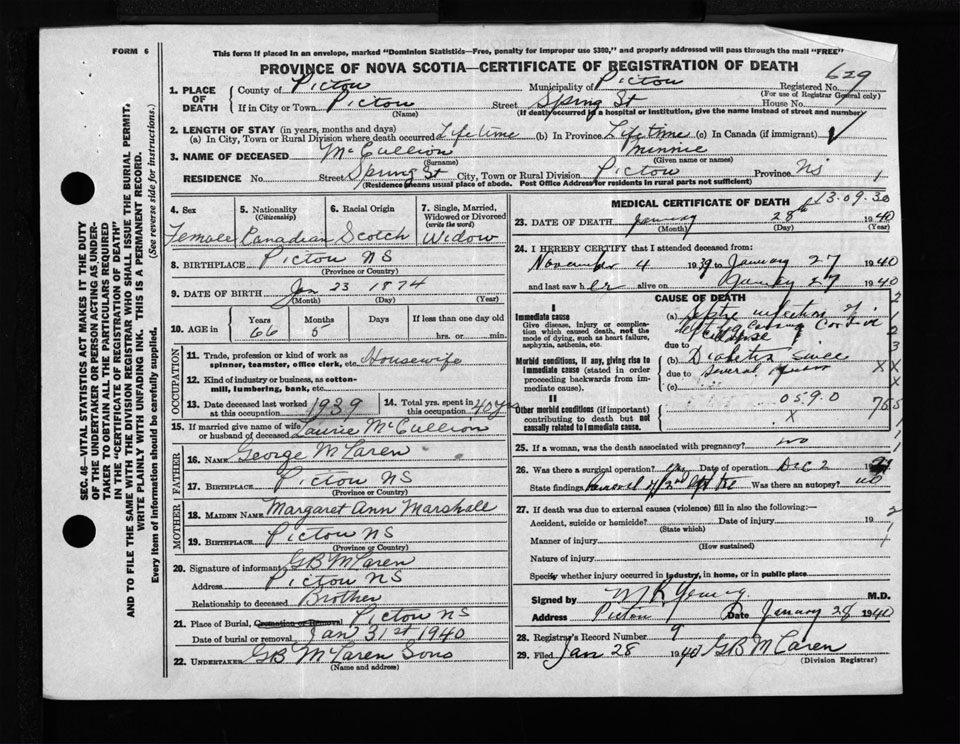 FORM 6
This form if placed in an envelope, marked "Dominion Statistics—Free, penalty for improper use $300," and properly addressed will pass through the mail "FREE"
PROVINCE OF NOVA SCOTIA—CERTIFICATE OF REGISTRATION OF DEATH
629
1. PLACE OF DEATH
County of Pictou Municipality of Pictou Registered No.
(For use of Registrar General only)
If in City or Town Pictou Street Spring St House No.
(Name) (If death occurred in a hospital or institution, give the name instead of street and number)
2. LENGTH OF STAY (in years, months and days)
(a) In City, Town or Rural Division where death occurred Lifetime (b) In Province Lifetime (c) In Canada (if immigrant)
3. NAME OF DECEASED McCullion Minnie
(Surname) (Given name or names)
RESIDENCE No. Street Spring St City, Town or Rural Division Pictou Province NS
(Residence means usual place of abode. Post Office Address for residents in rural parts not sufficient)
4. Sex
Female
5. Nationality
(Citizenship)
Canadian
6. Racial Origin
Scotch
7. Single, Married, Widowed or Divorced
(write the word)
Widow
8. BIRTHPLACE Pictou NS
(Province or Country)
9. DATE OF BIRTH Jan 23 1874
(Month) (Day) (Year)
10. AGE in
Years Months Days If less than one day old
66 5 hrs. or min.
OCCUPATION
11. Trade, profession or kind of work as spinner, teamster, office clerk, etc. Housewife
12. Kind of industry or business, as cotton-mill, lumbering, bank, etc.
13. Date deceased last worked at this occupation 1939
14. Total yrs. spent in this occupation 40 yrs
15. If married give name of wife or husband of deceased Laurie McCullion
FATHER
16. NAME George McLaren
17. BIRTHPLACE Pictou NS
(Province or Country)
MOTHER
18. MAIDEN NAME Margaret Ann Marshall
19. BIRTHPLACE Pictou NS
(Province or Country)
20. Signature of informant GB McLaren
Address Pictou NS
Relationship to deceased Brother
21. Place of Burial, Cremation or Removal Pictou NS
Date of burial or removal Jan 31st 1940
22. UNDERTAKER GB McLaren Sons
(Name and address)
MEDICAL CERTIFICATE OF DEATH
13.09.30
23. DATE OF DEATH January 28th 1940
(Month) (Day) (Year)
24. I HEREBY CERTIFY that I attended deceased from:
November 4 1939 to January 27 1940
and last saw her alive on January 27 1940
CAUSE OF DEATH
I
Immediate cause
Give disease, injury or complication which caused death, not the mode of dying, such as heart failure, asphyxia, asthenia, etc.
(a) Septic infection of
left leg causing
due to
Morbid conditions, if any, giving rise to immediate cause (stated in order proceeding backwards from immediate cause).
(b) Diabetes since
due to several years
(c)
II
Other morbid conditions (if important) contributing to death but not causally related to immediate cause.
0590
X
765
25. If a woman, was the death associated with pregnancy? no
26. Was there a surgical operation? yes Date of operation Dec 2 19
State findings Removal of Was there an autopsy? no
27. If death was due to external causes (violence) fill in also the following:—
Accident, suicide or homicide? Date of injury 19
(State which)
Manner of injury
(How sustained)
Nature of injury
Specify whether injury occurred in industry, in home, or in public place
Signed by M R Young M.D.
Address Pictou Date January 28 1940
28. Registrar's Record Number 9
29. Filed Jan 28 1940 GB McLaren
(Division Registrar)
SEC. 46—VITAL STATISTICS ACT MAKES IT THE DUTY
OF THE UNDERTAKER OR PERSON ACTING AS UNDER-
TAKER TO OBTAIN ALL THE PARTICULARS REQUIRED
IN THE "CERTIFICATE OF REGISTRATION OF DEATH"
AND TO FILE THE SAME WITH THE DIVISION REGISTRAR WHO SHALL ISSUE THE BURIAL PERMIT.
WRITE PLAINLY WITH UNFADING INK. THIS IS A PERMANENT RECORD.
Every item of information should be carefully supplied. (See reverse side for instructions.)